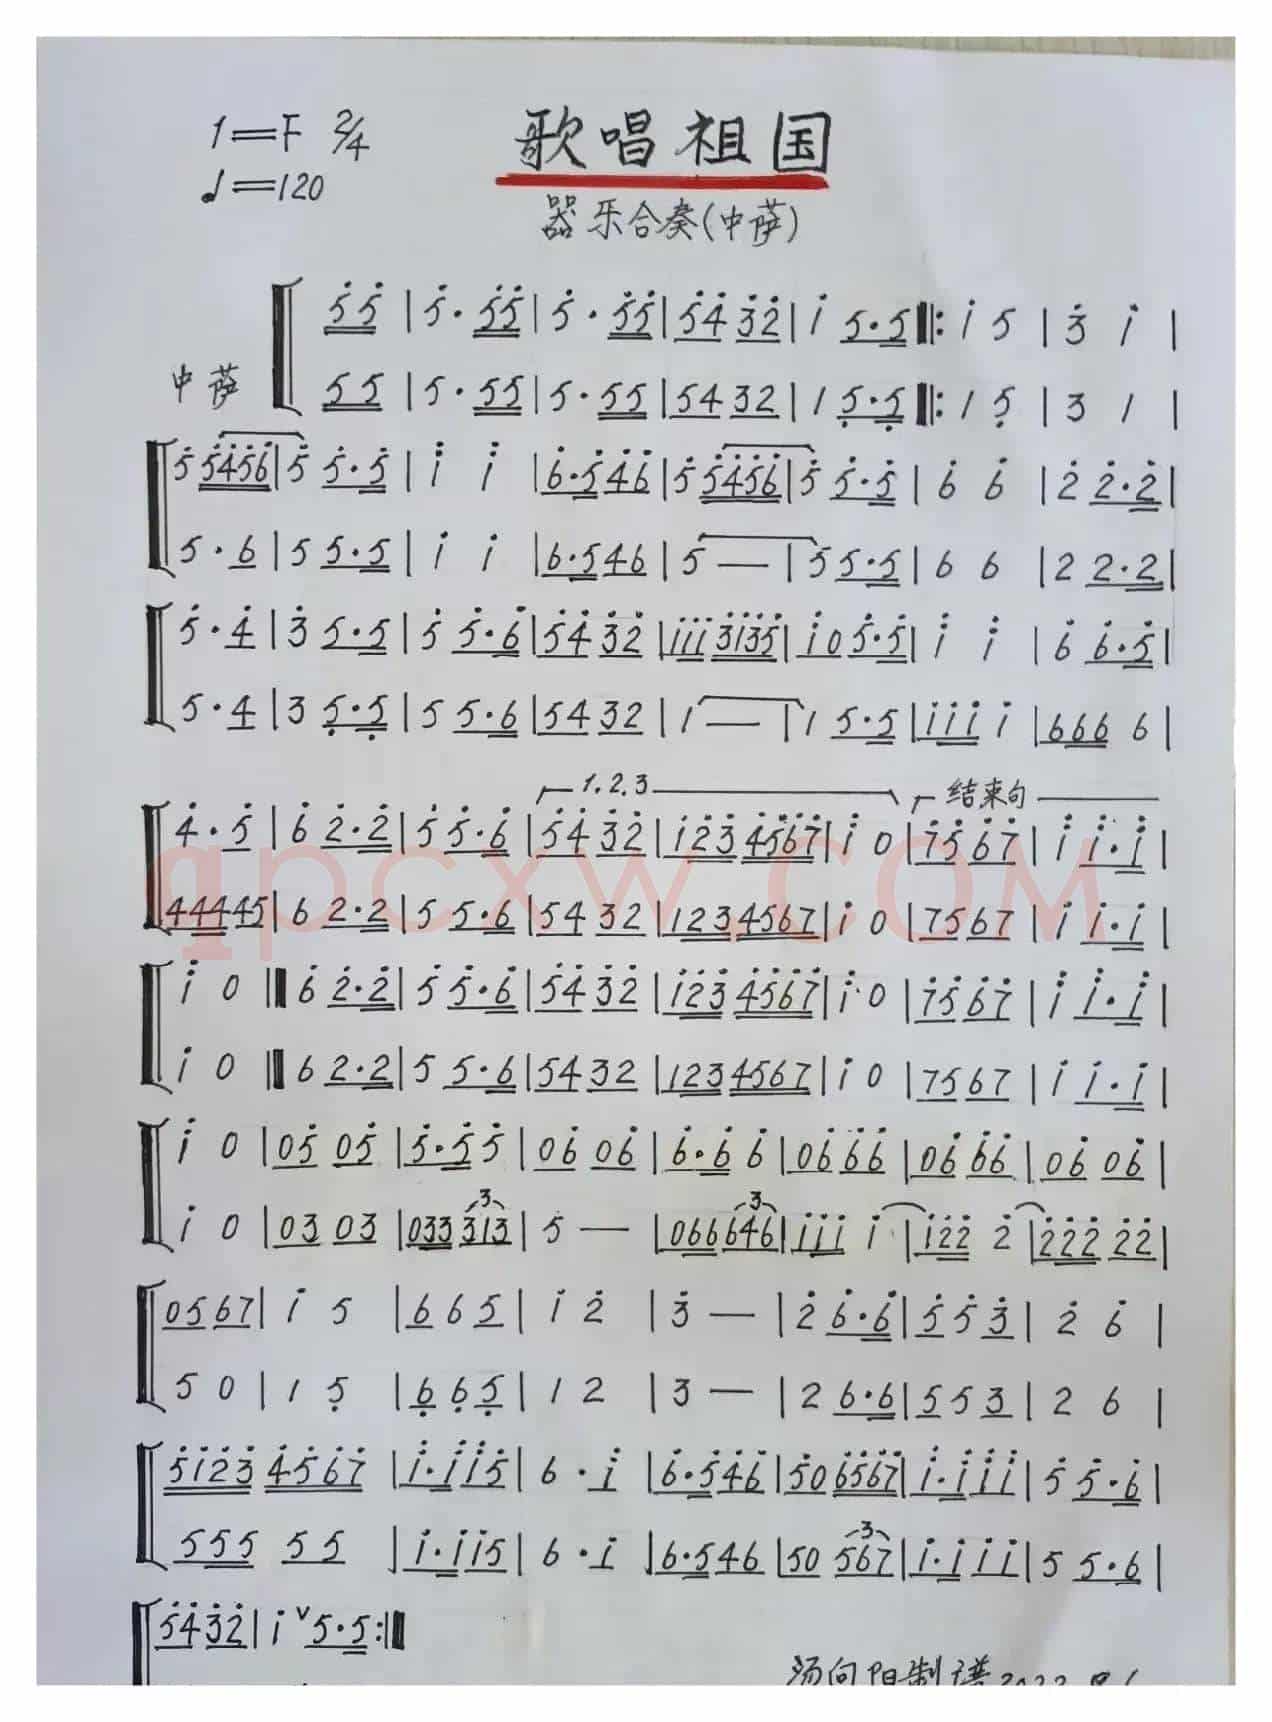 1=F 2/4 歌唱祖国
♩=120 器乐合奏(中萨)
5̇5̇ | 5̇· 5̇5̇ | 5̇· 5̇5̇ | 5̇4̇ 3̇2̇ | 1̇ 5·5 ‖: 1̇ 5 | 3̇ 1̇ |
中萨 55 | 5· 55 | 5· 55 | 54 32 | 1 5̣·5̣ ‖: 1 5̣ | 3 1 |
5̇ 5̇4̇5̇6̇ | 5̇ 5̇·5̇ | 1̈ 1̈ | 6̇·5̇4̇6̇ | 5̇ 5̇4̇5̇6̇ | 5̇ 5̇·5̇ | 6̇ 6̇ | 2̇ 2̇·2̇ |
5·6 | 5 5·5 | 1̇ 1̇ | 6·546 | 5 — | 5 5·5 | 6 6 | 2 2·2 |
5̇·4̇ | 3̇ 5·5 | 5̇ 5̇·6̇ | 5̇4̇ 3̇2̇ | 1̇1̇1̇ 3̇1̇3̇5̇ | 1̇0 5̇·5̇ | 1̈ 1̈ | 6̇ 6̇·5̇ |
5·4 | 3 5̣·5̣ | 5 5·6 | 54 32 | 1 — | 1 5·5 | 1̇1̇1̇ 1̇ | 666 6 |
1.2.3 结束句
4̇·5̇ | 6̇ 2̇·2̇ | 5̇ 5̇·6̇ | 5̇4̇ 3̇2̇ | 1̇2̇3̇ 4̇5̇6̇7̇ | 1̇ 0 | 7̇5̇ 6̇7̇ | 1̈ 1̈·1̈ |
44445 | 6 2·2 | 5 5·6 | 54 32 | 123 4567 | 1̇ 0 | 7567 | 1̇ 1̇·1̇ |
1̈ 0 ‖ 6̇ 2̇·2̇ | 5̇ 5̇·6̇ | 5̇4̇ 3̇2̇ | 1̇2̇3̇ 4̇5̇6̇7̇ | 1̇ 0 | 7̇5̇ 6̇7̇ | 1̈ 1̈·1̈ |
1̇ 0 ‖ 6 2·2 | 5 5·6 | 54 32 | 123 4567 | 1̇ 0 | 75 67 | 1̇ 1̇·1̇ |
1̈ 0 | 05̇ 05̇ | 5̇·5̇ 5̇ | 06̇ 06̇ | 6̇·6̇ 6̇ | 06̇ 6̇6̇ | 06̇ 6̇6̇ | 06̇ 06̇ |
1̇ 0 | 03 03 | 033 313 3 | 5 — | 066 646 3 | 1̇1̇1̇ 1̇ | 1̇2̇2̇ 2̇ | 2̇2̇2̇ 2̇2̇ |
05 67 | 1̇ 5 | 6 6 5 | 1̇ 2̇ | 3̇ — | 2̇ 6̇·6̇ | 5̇ 5̇ 3̇ | 2̇ 6̇ |
5 0 | 1 5̣ | 6̣ 6̣ 5̣ | 1 2 | 3 — | 2 6·6 | 5 5 3 | 2 6 |
5̇1̇2̇3̇ 4̇5̇6̇7̇ | 1̈·1̈1̈5̇ | 6·1̇ | 6̇·5̇4̇6̇ | 5̇0 6̇5̇6̇7̇ | 1̈·1̈ 1̈1̈ | 5̇ 5̇·6̇ |
555 55 | 1̇·1̇1̇5 | 6·1̇ | 6·546 | 50 567 3 | 1̇·1̇ 1̇1̇ | 5 5·6 |
5̇4̇ 3̇2̇ | 1̇ ∨ 5·5 :‖
汤向阳制谱2022.8.
qpcxw.COM